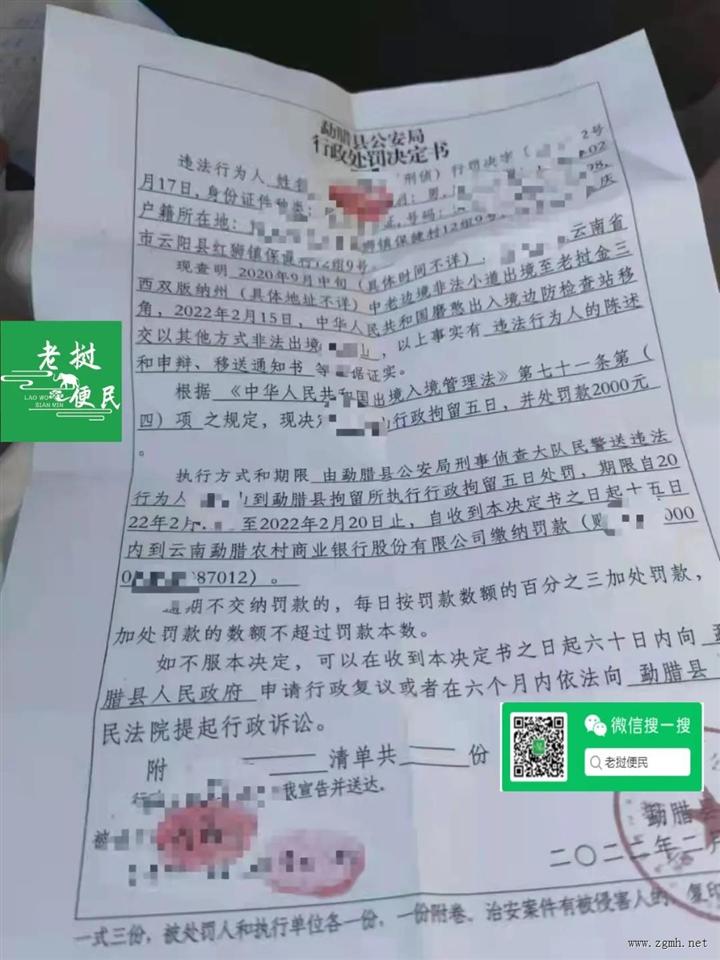 勐腊县公安局
行政处罚决定书
违法行为人 姓名 刑侦）行罚决字〔 2号
月17日，身份证件种类： ：男， 02
户籍所在地： 证，号码： 98，
狮镇保健村12组9号， 庆
市云阳县红狮镇保健村12组9号。
现查明 2020年9月中旬（具体时间不详）， 云南省
西双版纳州（具体地址不详）中老边境非法小道出境至老挝金三
角，2022年2月15日，中华人民共和国磨憨出入境边防检查站移
交以其他方式非法出境 ，以上事实有 违法行为人的陈述
和申辩、移送通知书 等证据证实。
根据 《中华人民共和国出境入境管理法》第七十一条第（
四）项 之规定，现决定 行政拘留五日，并处罚款2000元
。
执行方式和期限 由勐腊县公安局刑事侦查大队民警送违法
行为人 到勐腊县拘留所执行行政拘留五日处罚，期限自20
22年2月 至2022年2月20日止，自收到本决定书之日起十五日
内到云南勐腊农村商业银行股份有限公司缴纳罚款（账 000
0 87012）。
逾期不交纳罚款的，每日按罚款数额的百分之三加处罚款，
加处罚款的数额不超过罚款本数。
如不服本决定，可以在收到本决定书之日起六十日内向 勐
腊县人民政府 申请行政复议或者在六个月内依法向 勐腊县
民法院提起行政诉讼。
附 清单共 份
行 我宣告并送达.
被
勐腊县
二〇二二年二月
一式三份，被处罚人和执行单位各一份，一份附卷。治安案件有被侵害人的，复印
老挝
便民
LAO WO
BIAN MIN
微信搜一搜
老挝便民
www.zgmh.net